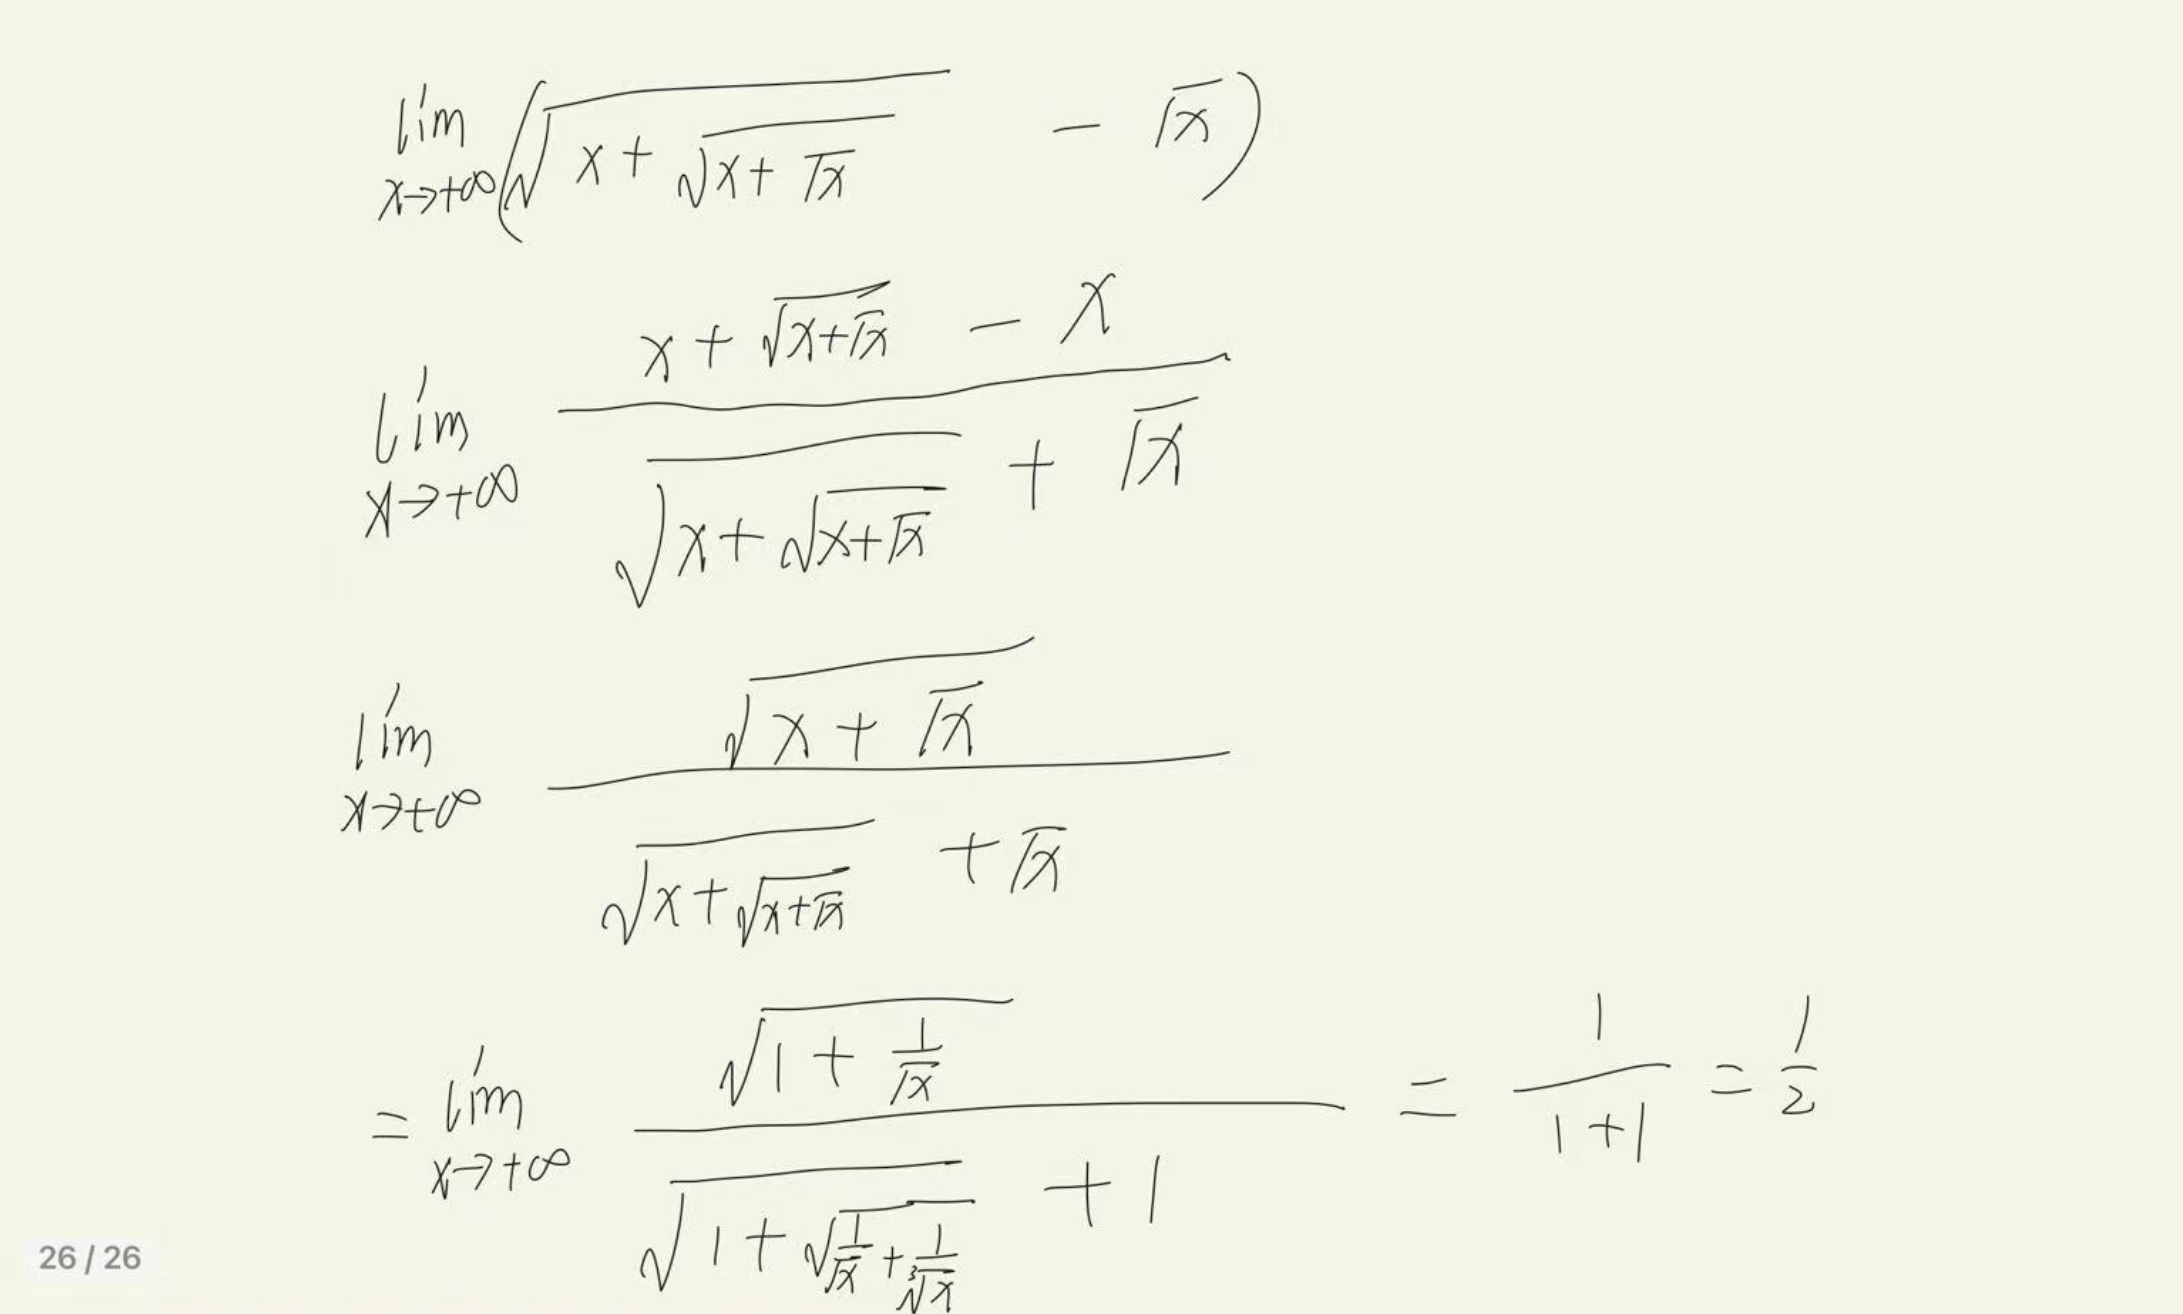 lim x→+∞ (√(x + √(x + √x)) − √x)
lim x→+∞ (x + √(x + √x) − x) / (√(x + √(x + √x)) + √x)
lim x→+∞ √(x + √x) / (√(x + √(x + √x)) + √x)
= lim x→+∞ √(1 + 1/√x) / (√(1 + √(1/√x + 1/∛x)) + 1) = 1/(1+1) = 1/2
26 / 26